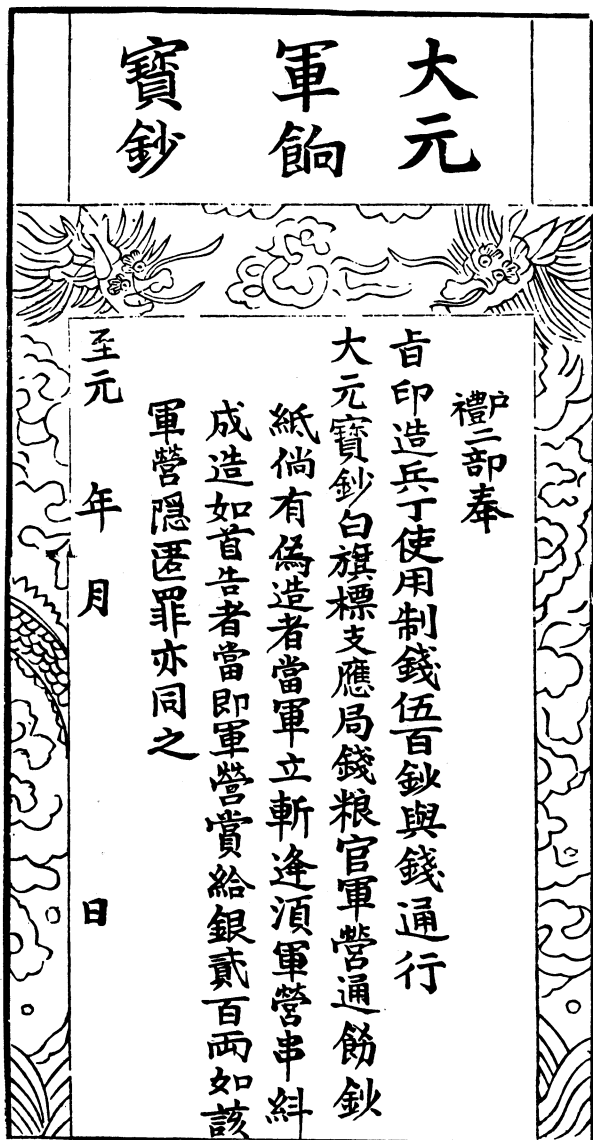 大元
軍餉
寶鈔
戶禮二部奉
旨印造兵丁使用制錢伍百鈔與錢通行
大元寶鈔白旗標支應局錢粮官軍營通餝鈔
紙倘有偽造者當軍立斬逄湏軍營串糾
成造如首告者當即軍營賞給銀貳百両如該
軍營隠匿罪亦同之
至元 年 月 日